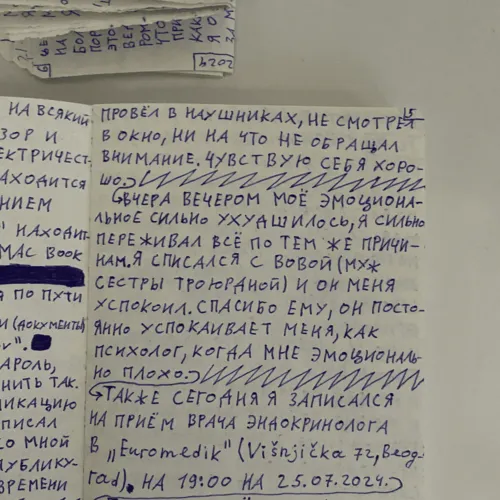 НА ВСЯКИЙ
ЗОР И
ЕКТРИЧЕСТ
АХОДИТСЯ
НИЕМ
" НАХОДИТ
MAC BOOK
Я ПО ПУТИ
И (ДОКУМЕНТЫ)
АРОЛЬ,
НИТЬ ТАК.
ИКАЦИЮ
ПИСАЛ
СО МНОЙ
УБЛИКУ-
ВРЕМЕНИ
15
ПРОВЁЛ В НАУШНИКАХ, НЕ СМОТРЕЛ
В ОКНО, НИ НА ЧТО НЕ ОБРАЩАЛ
ВНИМАНИЕ. ЧУВСТВУЮ СЕБЯ ХОРО-
ШО.
ВЧЕРА ВЕЧЕРОМ МОЁ ЭМОЦИОНА-
ЛЬНОЕ СИЛЬНО УХУДШИЛОСЬ, Я СИЛЬНО
ПЕРЕЖИВАЛ ВСЁ ПО ТЕМ ЖЕ ПРИЧИ-
НАМ. Я СПИСАЛСЯ С ВОВОЙ (МУЖ
СЕСТРЫ ТРОЮРДНОЙ) И ОН МЕНЯ
УСПОКОИЛ. СПАСИБО ЕМУ, ОН ПОСТО-
ЯННО УСПОКАИВАЕТ МЕНЯ, КАК
ПСИХОЛОГ, КОГДА МНЕ ЭМОЦИОНАЛЬ-
НО ПЛОХО.
ТАКЖЕ СЕГОДНЯ Я ЗАПИСАЛСЯ
НА ПРИЁМ ВРАЧА ЭНДОКРИНОЛОГА
В „Euromedik" (Višnjička 72, Beog-
rad). НА 19:00 НА 25.07.2024.